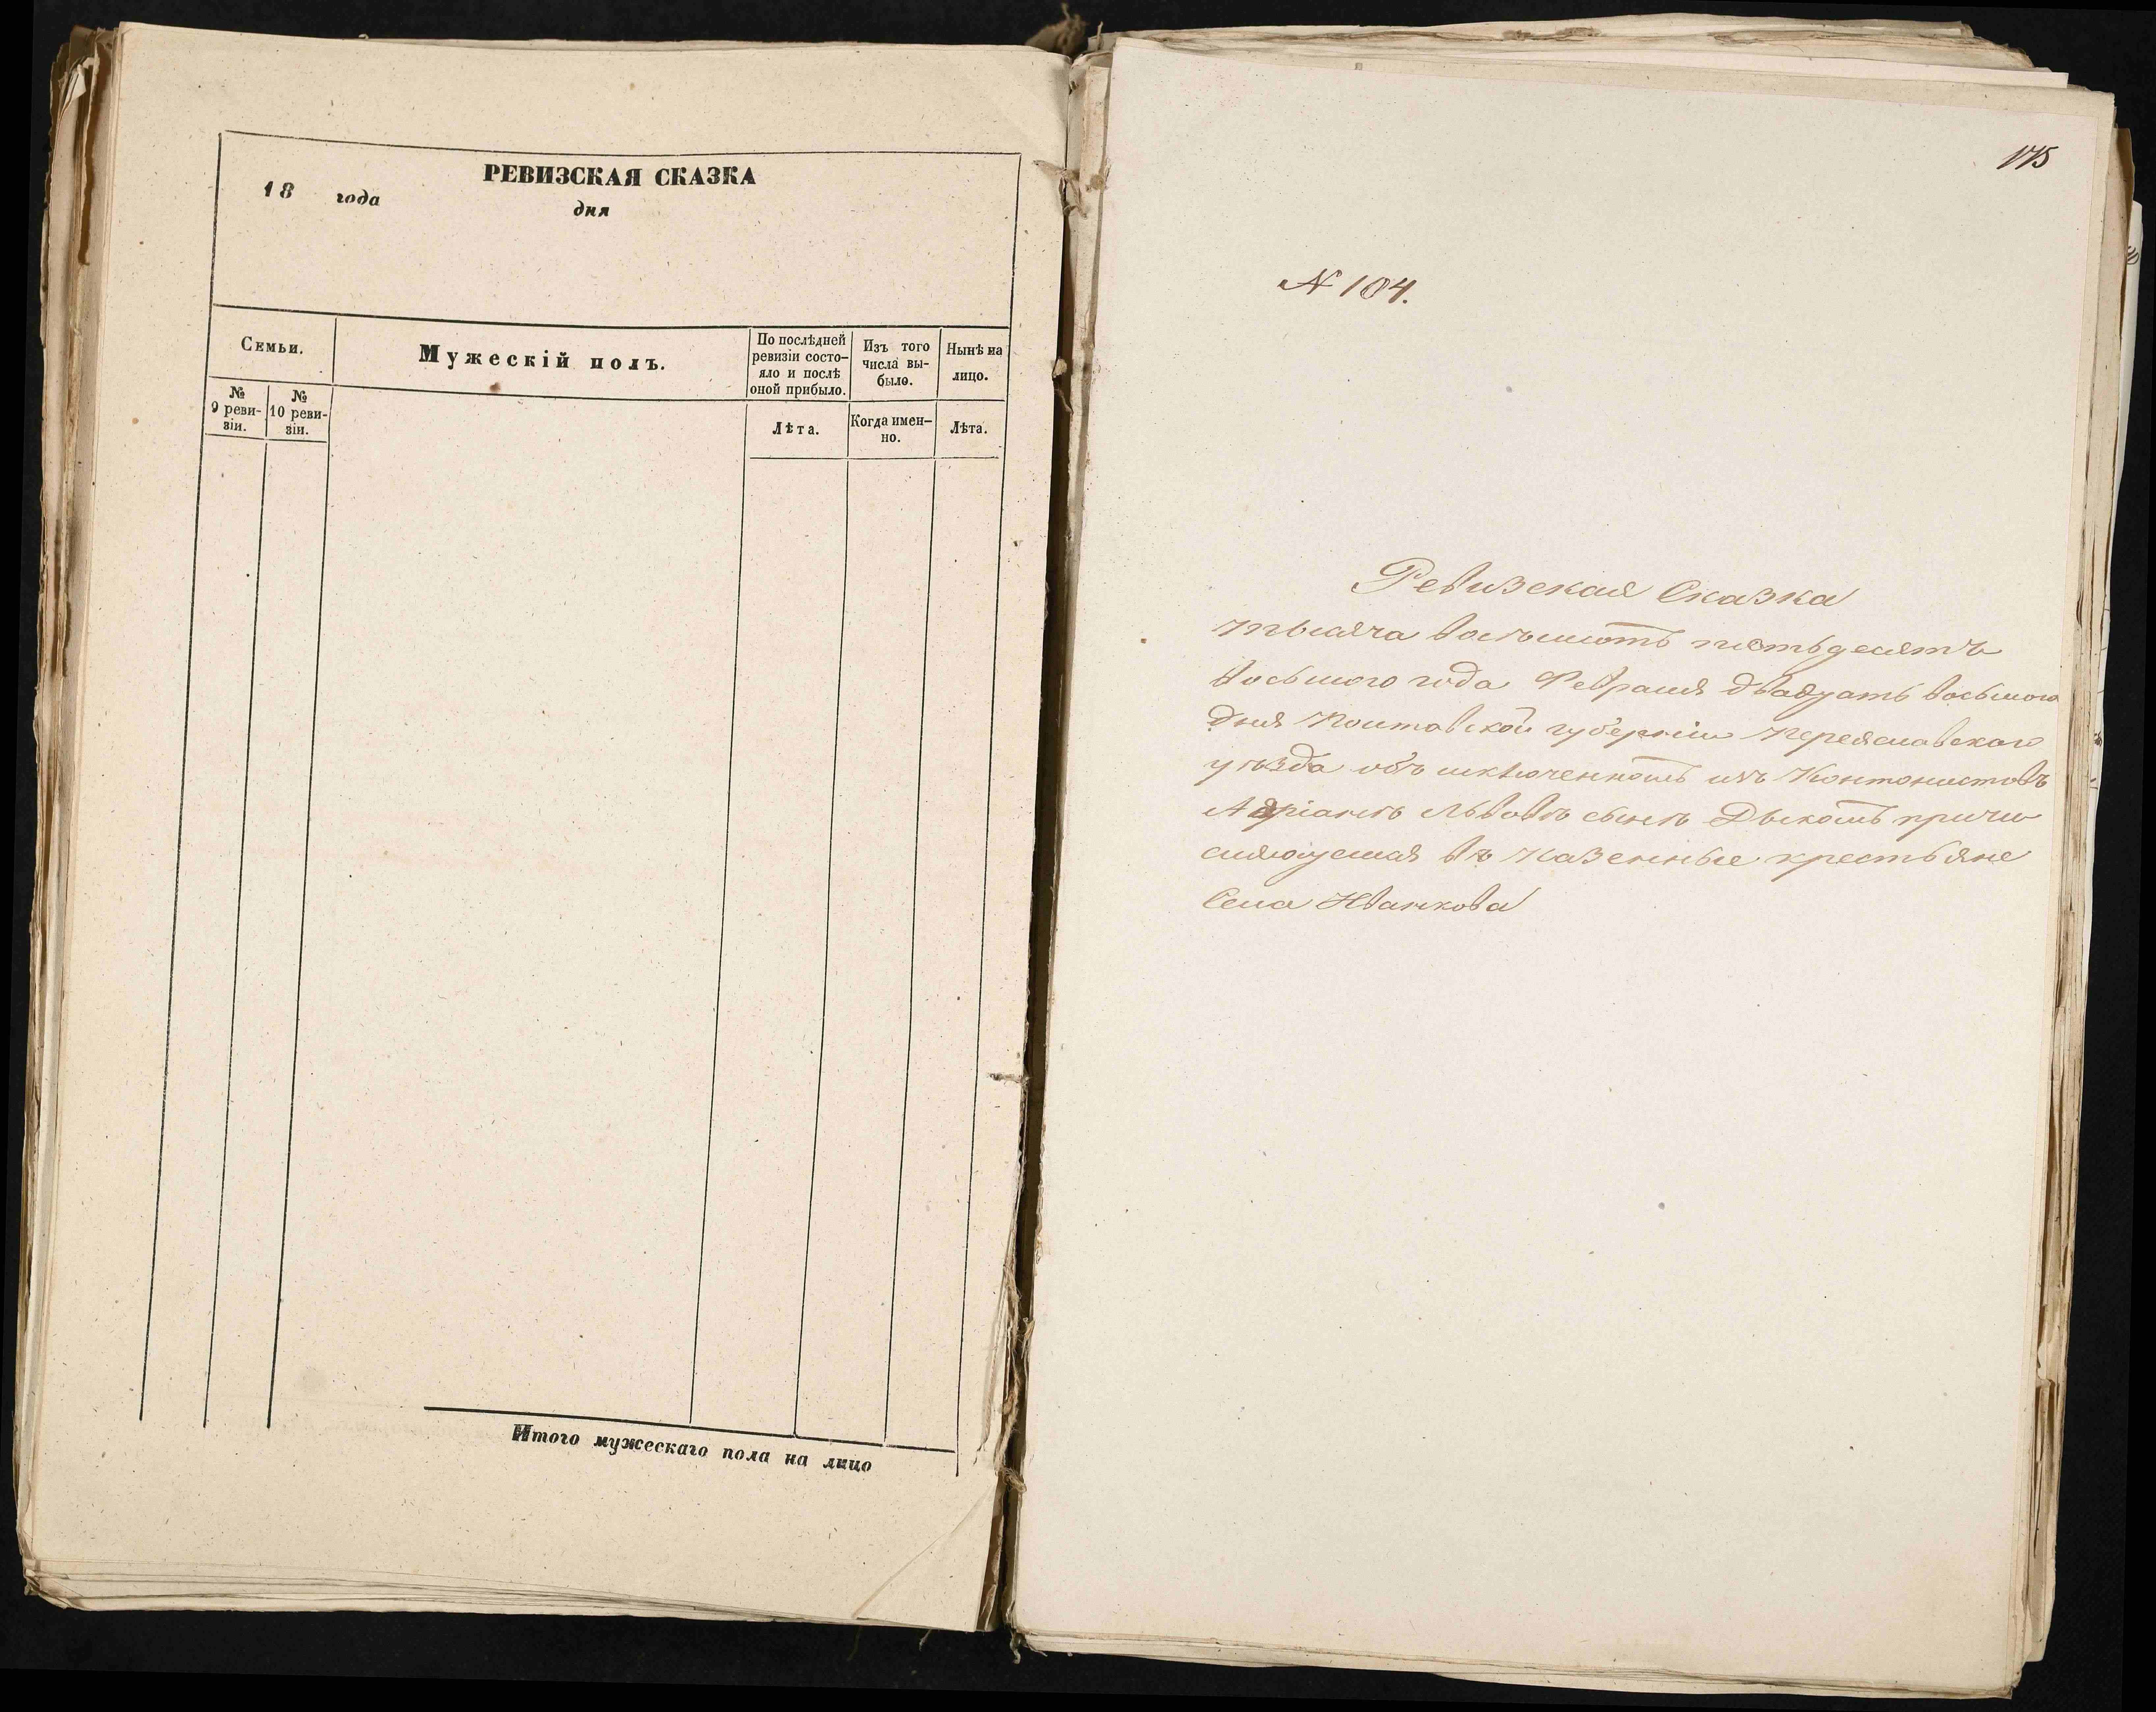 РЕВИЗСКАЯ СКАЗКА
18 года дня
Семьи.
Мужескій полъ.
По послѣдней
ревизіи состо-
яло и послѣ
оной прибыло.
Изъ того
числа вы-
было.
Нынѣ на
лицо.
№
9 реви-
зіи.
№
10 реви-
зіи.
Лѣта.
Когда имен-
но.
Лѣта.
Итого мужескаго пола на лицо
175
№ 104.
Ревизская Сказка
тысяча восемьсотъ пятьдесятъ
восьмого года Февраля двадцать восьмого
дня Полтавской губерніи Переяславскаго
уѣзда объ исключенномъ изъ Контонистовъ
Адріанѣ Львовѣ сынѣ причи
сляющемся въ казенные крестьяне
Села Иванкова